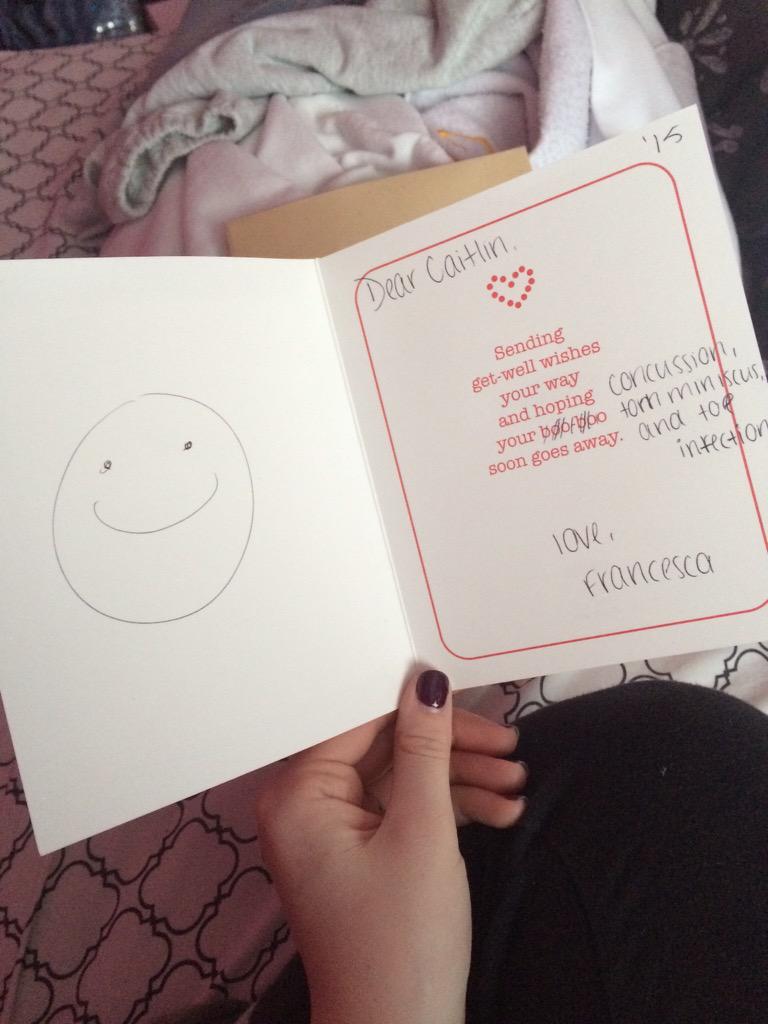 '15
Dear Caitlin,
Sending
get-well wishes
your way
and hoping
your boo-boo concussion,
soon goes away. torn miniscus,
and toe
infection
love,
Francesca